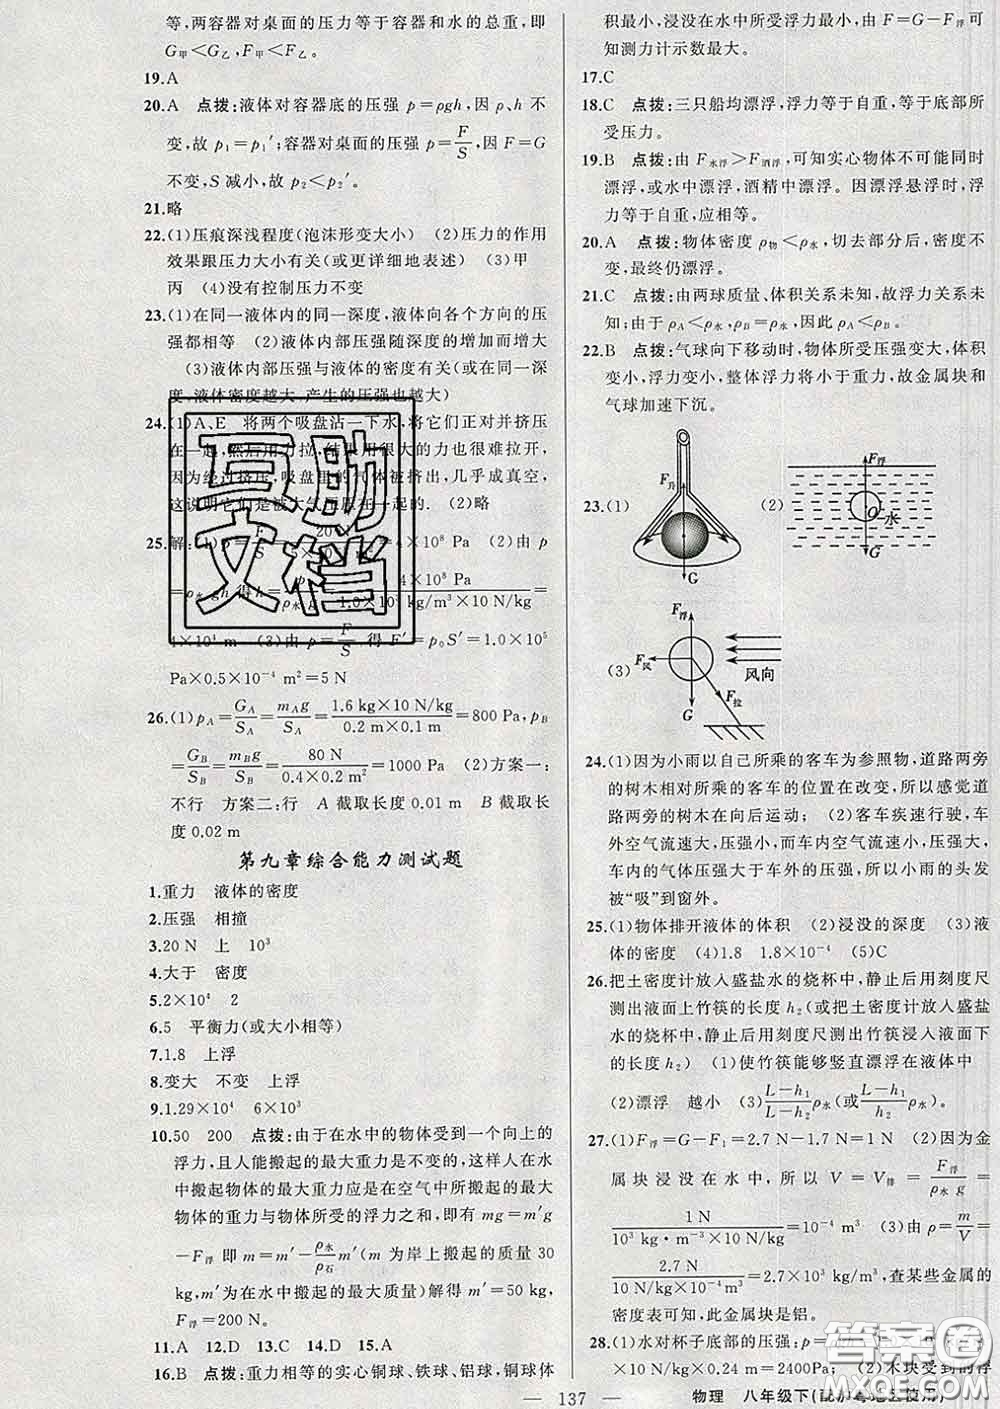 等，两容器对桌面的压力等于容器和水的总重，即
G甲＜G乙，F甲＜F乙。
19.A
20.A 点拨：液体对容器底的压强 p＝ρgh，因 ρ、h 不
变，故 p₁＝p₁′；容器对桌面的压强 p＝F/S，因 F＝G
不变，S 减小，故 p₂＜p₂′。
21.略
22.(1)压痕深浅程度(泡沫形变大小) (2)压力的作用
效果跟压力大小有关(或更详细地表述) (3)甲
丙 (4)没有控制压力不变
23.(1)在同一液体内的同一深度，液体向各个方向的压
强都相等 (2)液体内部压强随深度的增加而增大
(3)液体内部压强与液体的密度有关(或在同一深
度，液体密度越大 产生的压强也越大)
24.(1)A、E 将两个吸盘沾一下水，将它们正对并挤压
在一起，然后用力拉，结果用很大的力也很难拉开，
因为经过挤压，吸盘里的气体被挤出，几乎成真空，
这说明它们是被大气压压在一起的. (2)略
25.解：(1)p＝F/S＝ ＝4×10⁸ Pa (2)由 p
＝ρ水gh 得 h＝p/ρ水g＝4×10⁸ Pa/1.0×10³ kg/m³×10 N/kg＝
4×10⁴ m (3)由 p＝F/S 得 F′＝p₀S′＝1.0×10⁵
Pa×0.5×10⁻⁴ m²＝5 N
26.(1)pA＝GA/SA＝mAg/SA＝1.6 kg×10 N/kg/0.2 m×0.1 m＝800 Pa，pB
＝GB/SB＝mBg/SB＝80 N/0.4×0.2 m²＝1000 Pa (2)方案一：
不行 方案二：行 A 截取长度 0.01 m B 截取长
度 0.02 m
第九章综合能力测试题
1.重力 液体的密度
2.压强 相撞
3.20 N 上 10³
4.大于 密度
5.2×10⁴ 2
6.5 平衡力(或大小相等)
7.1.8 上浮
8.变大 不变 上浮
9.1.29×10⁴ 6×10³
10.50 200 点拨：由于在水中的物体受到一个向上的
浮力，且人能搬起的最大重力是不变的，这样人在水
中搬起物体的最大重力应是在空气中所搬起的最大
物体的重力与物体所受的浮力之和，即有 mg＝m′g
－F浮 即 m＝m′－ρ水/ρ石 m′(m 为岸上搬起的质量 30
kg，m′为在水中搬起的最大质量)解得 m′＝50 kg，
F浮＝200 N。
11.A 12.D 13.C 14.D 15.A
16.B 点拨：重力相等的实心铜球、铁球、铝球，铜球体
积最小，浸没在水中所受浮力最小，由 F＝G－F浮 可
知测力计示数最大。
17.C
18.C 点拨：三只船均漂浮，浮力等于自重，等于底部所
受压力。
19.B 点拨：由 F水浮＞F酒浮，可知实心物体不可能同时
漂浮，或水中漂浮，酒精中漂浮。因漂浮悬浮时，浮
力等于自重，应相等。
20.A 点拨：物体密度 ρ物＜ρ水，切去部分后，密度不
变，最终仍漂浮。
21.C 点拨：由两球质量、体积关系未知，故浮力关系未
知；由于 ρA＜ρ水，ρB＝ρ水，因此 ρA＜ρB。
22.B 点拨：气球向下移动时，物体所受压强变大，体积
变小，浮力变小，整体浮力将小于重力，故金属块和
气球加速下沉。
23.(1) F升 G (2) F浮 O 水 G
(3) F浮 F风 风向 F拉 G
24.(1)因为小雨以自己所乘的客车为参照物，道路两旁
的树木相对所乘的客车的位置在改变，所以感觉道
路两旁的树木在向后运动； (2)客车疾速行驶，车
外空气流速大，压强小，而车内空气流速小，压强大，
车内的气体压强大于车外的压强，所以小雨的头发
被“吸”到窗外。
25.(1)物体排开液体的体积 (2)浸没的深度 (3)液
体的密度 (4)1.8 1.8×10⁻⁴ (5)C
26.把土密度计放入盛盐水的烧杯中，静止后用刻度尺
测出液面上竹筷的长度 h₂(或把土密度计放入盛盐
水的烧杯中，静止后用刻度尺测出竹筷浸入液面下
的长度 h₂) (1)使竹筷能够竖直漂浮在液体中
(2)漂浮 越小 L－h₁/L－h₂ ρ水(或 L－h₁/h₂ ρ水)。
27.(1)F浮＝G－F₁＝2.7 N－1.7 N＝1 N (2)因为金
属块浸没在水中，所以 V＝V排＝F浮/ρ水g＝
1 N/10³ kg·m⁻³×10 N/kg＝10⁻⁴ m³ (3)由 ρ＝m/V＝
2.7 N/10 N/kg×10⁻⁴m³＝2.7×10³ kg/m³，查某些金属的
密度表可知，此金属块是铝。
28.(1)水对杯子底部的压强：p＝
×10 N/kg×0.24 m＝2400Pa； (2)木块受到的浮
— 137 —
物理 八年级下(配沪粤地区使用)
互助文档
答案圈